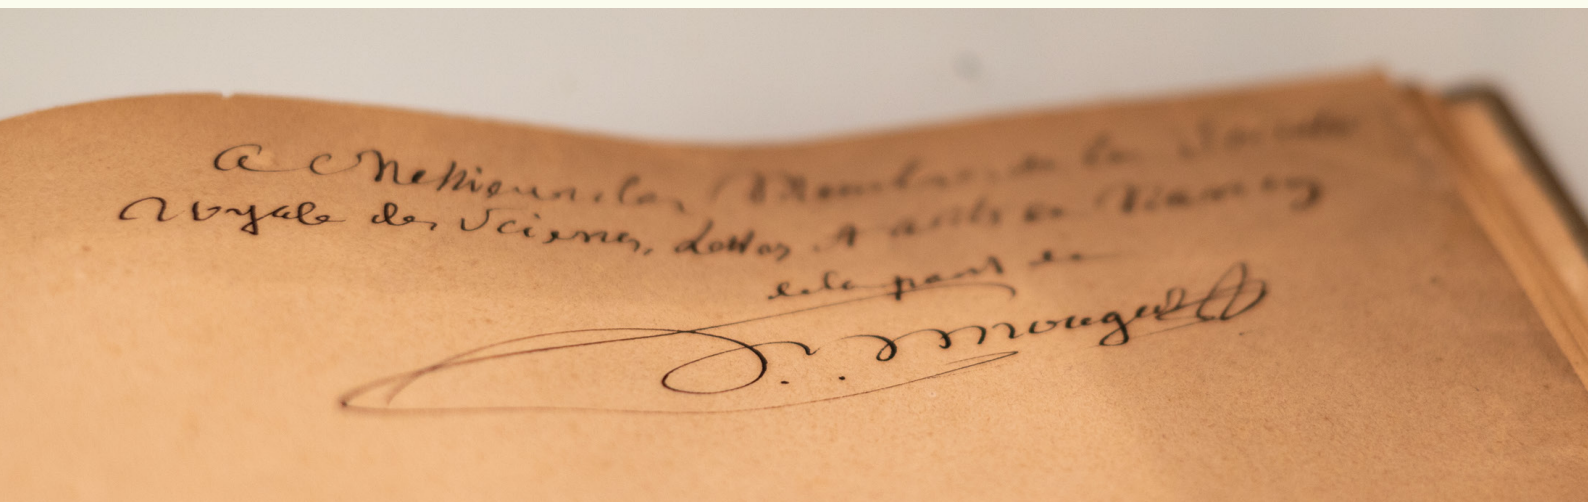 A Messieurs les Membres de la Société
Royale des Sciences, Lettres & arts de Nancy
de la part de
Mougeot